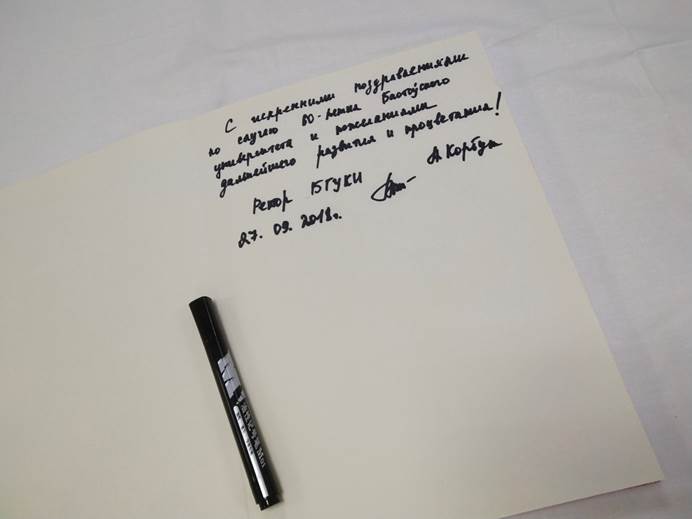 С искренними поздравлениями
по случаю 80-летия
университета и пожеланиями
дальнейшего развития и процветания!
Ректор БГУКИ А Корбут
27. 09. 2018г.